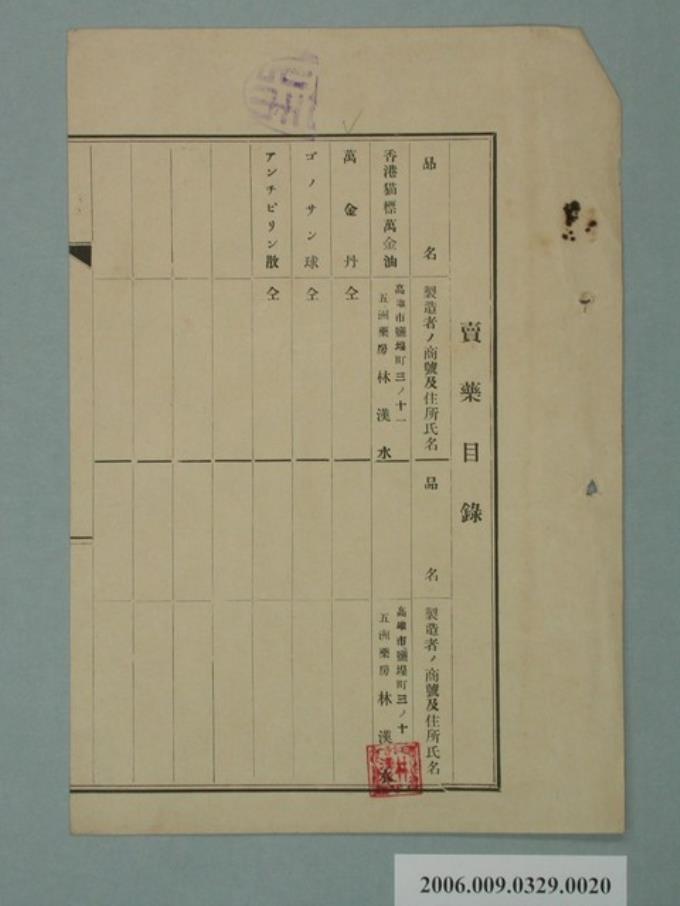 賣藥目錄
品名
製造者ノ商號及住所氏名
品名
製造者ノ商號及住所氏名
香港猫標萬金油
高雄市鹽埕町三ノ十一
五洲藥房 林漢水
高雄市鹽埕町三ノ十一
五洲藥房 林漢水
萬金丹
仝
ゴノサン球
仝
アンチピリン散
仝
2006.009.0329.0020